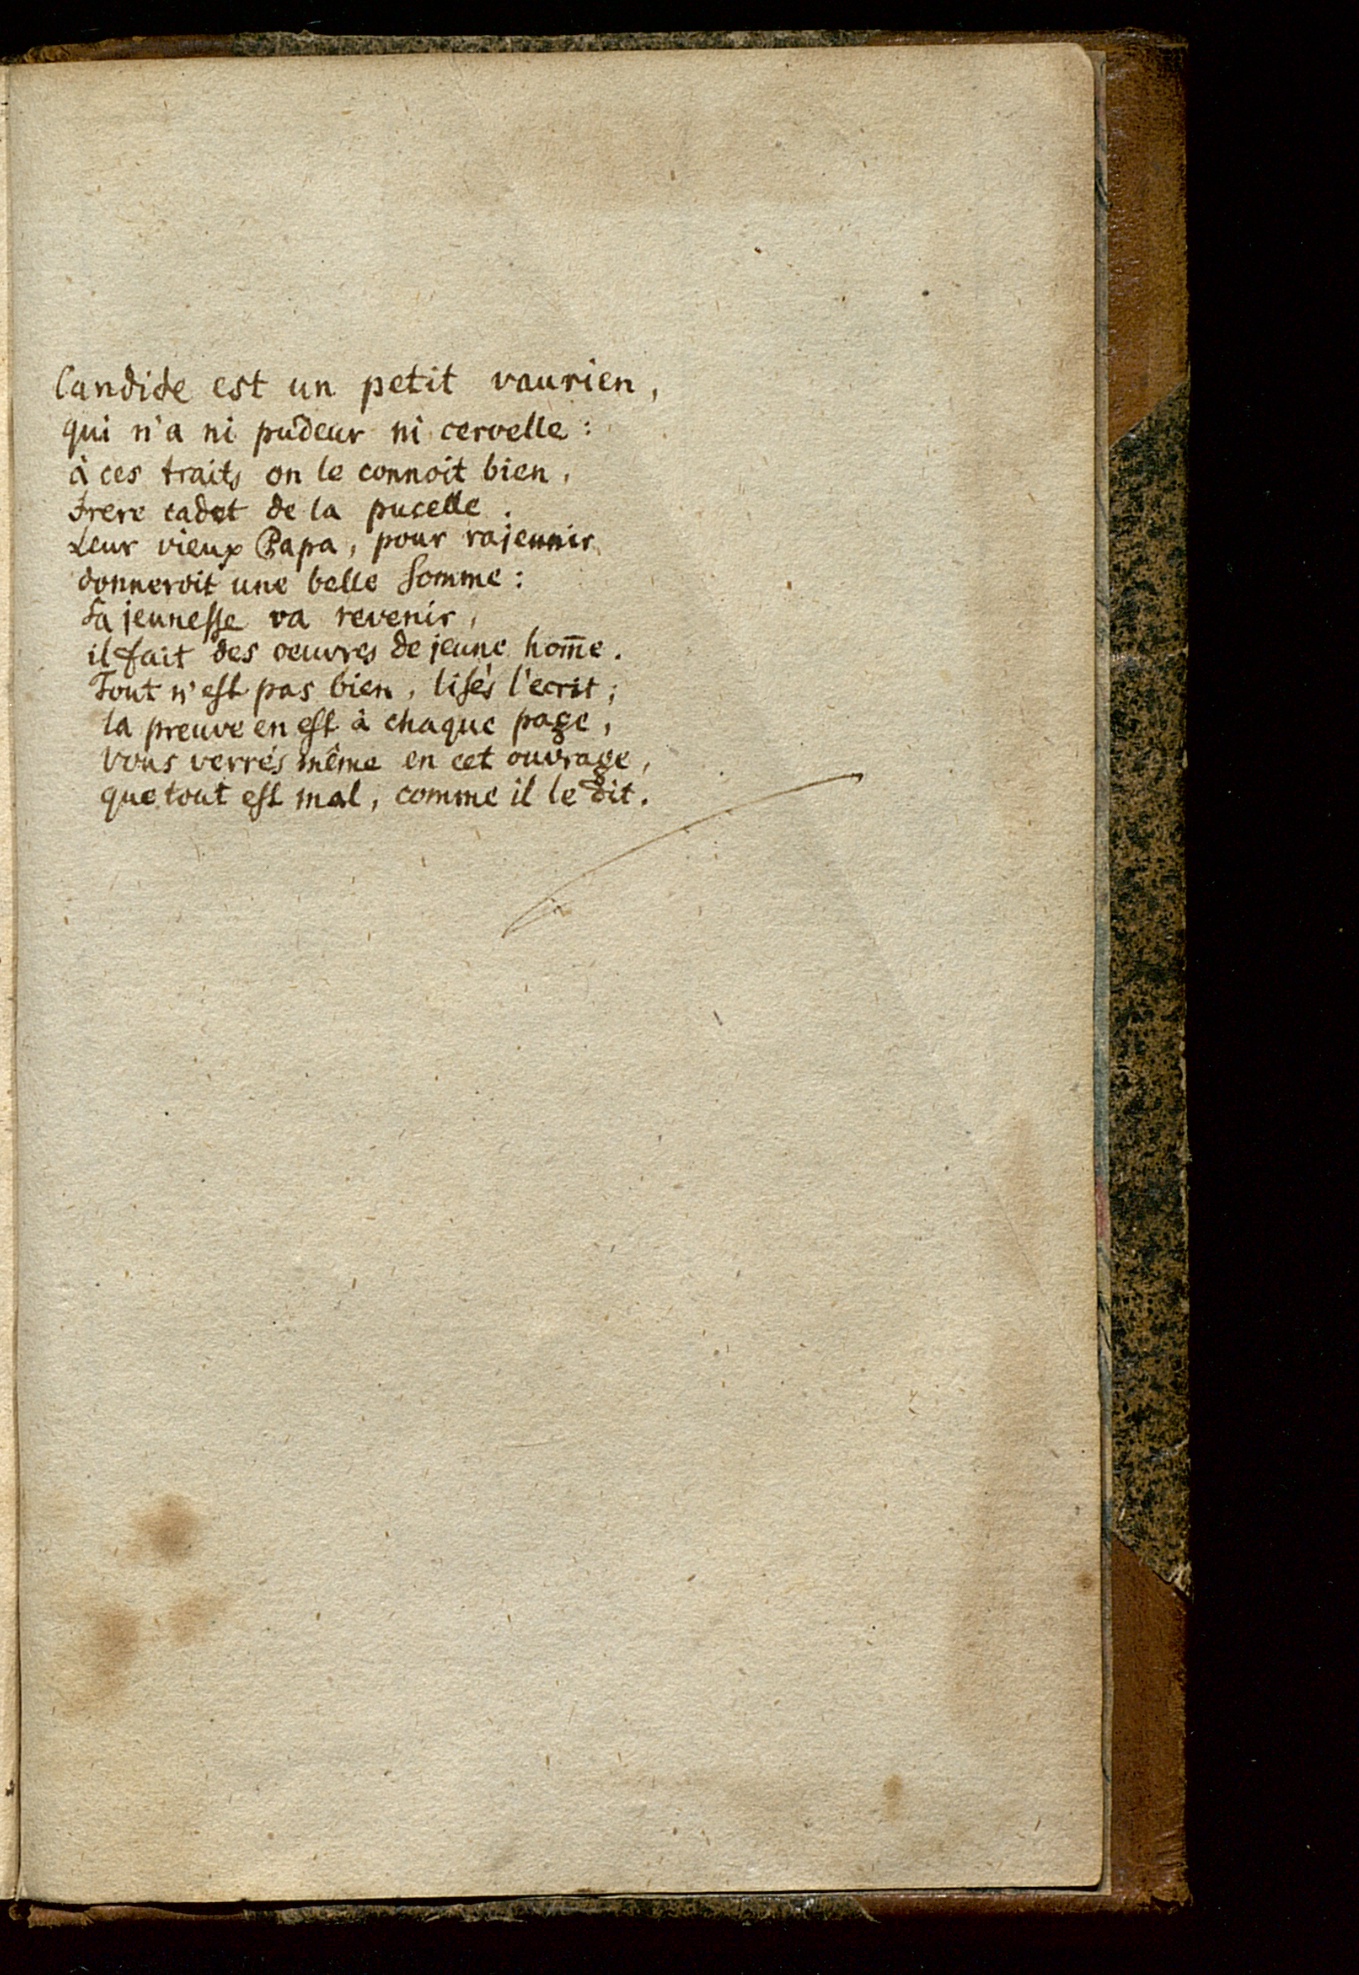 Candide est un petit vaurien,
qui n'a ni pudeur ni cervelle:
à ces traits on le connoit bien,
frere cadet de la pucelle.
Leur vieux Papa, pour rajeunir
donneroit une belle somme:
sa jeunesse va revenir,
il fait des oeuvres de jeune hom̄e.
Tout n'est pas bien, lisés l'ecrit;
la preuve en est à chaque page,
vous verrés même en cet ouvrage,
que tout est mal, comme il le dit.